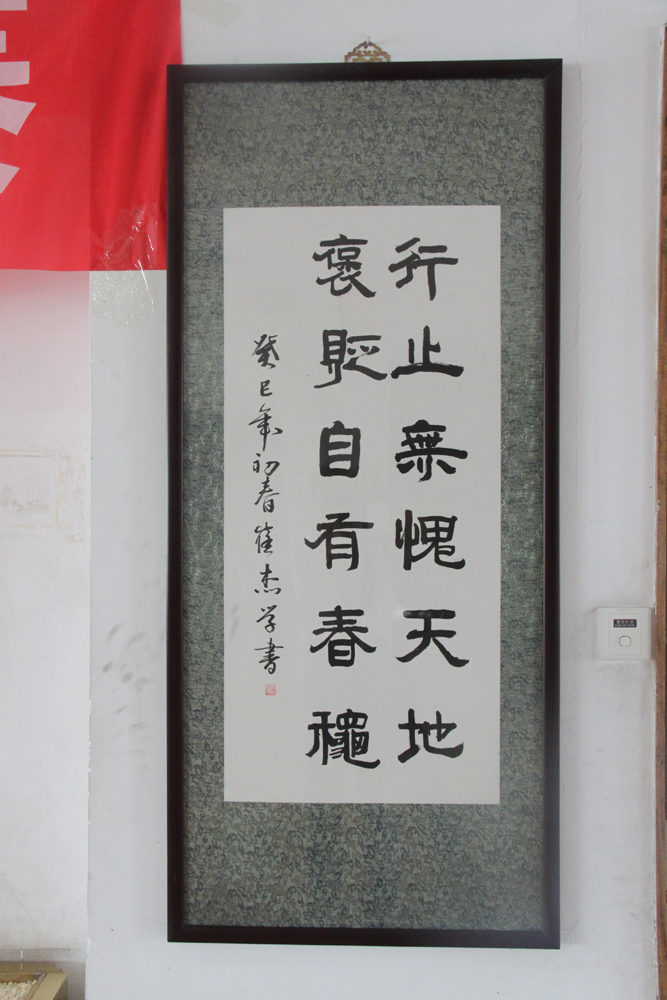 行止無愧天地
褒貶自有春龝
癸巳年初春崔杰学書